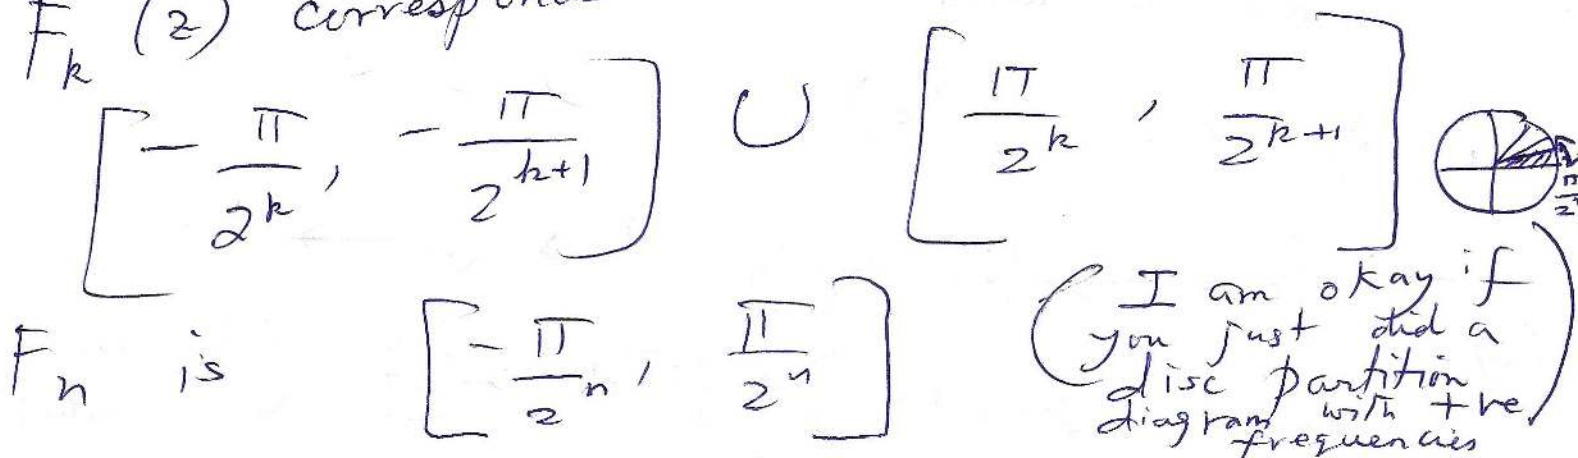 F_k (z) correspon
[-π/2^k, -π/2^{k+1}] ∪ [π/2^k, π/2^{k+1}]
F_n is [-π/2^n, π/2^n]
(I am okay if
you just did a
disc partition
diagram with +ve
frequencies)